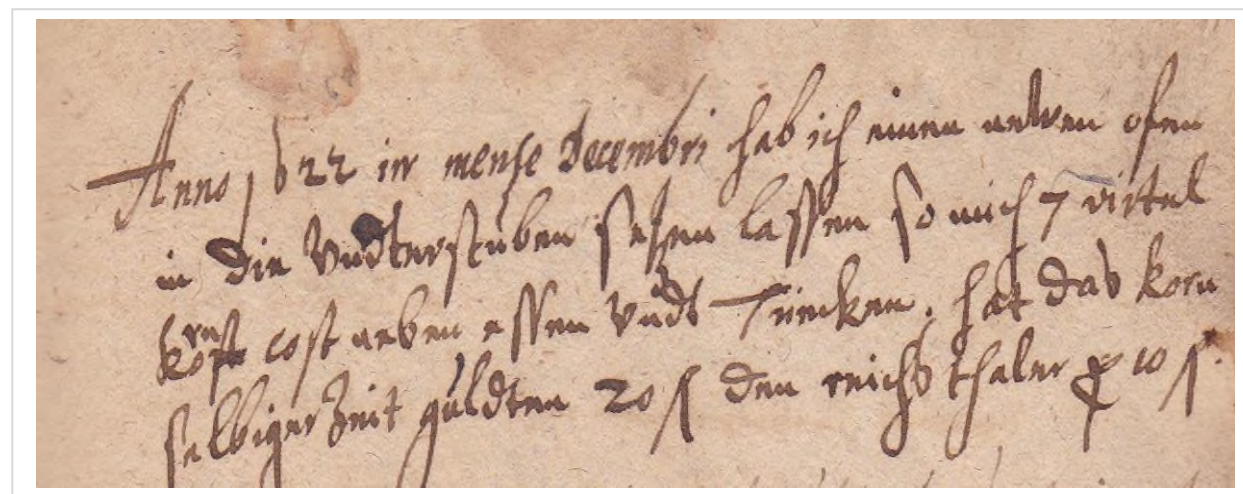 Anno 1622 in mense Decembri hab ich einen newen ofen
in die Vndterstuben setzen lassen so mich 7 virtel
korn cost neben essen vndt Trincken, hat das korn
selbiger Zeit guldten 20 f den reichs thaler p 10 f.